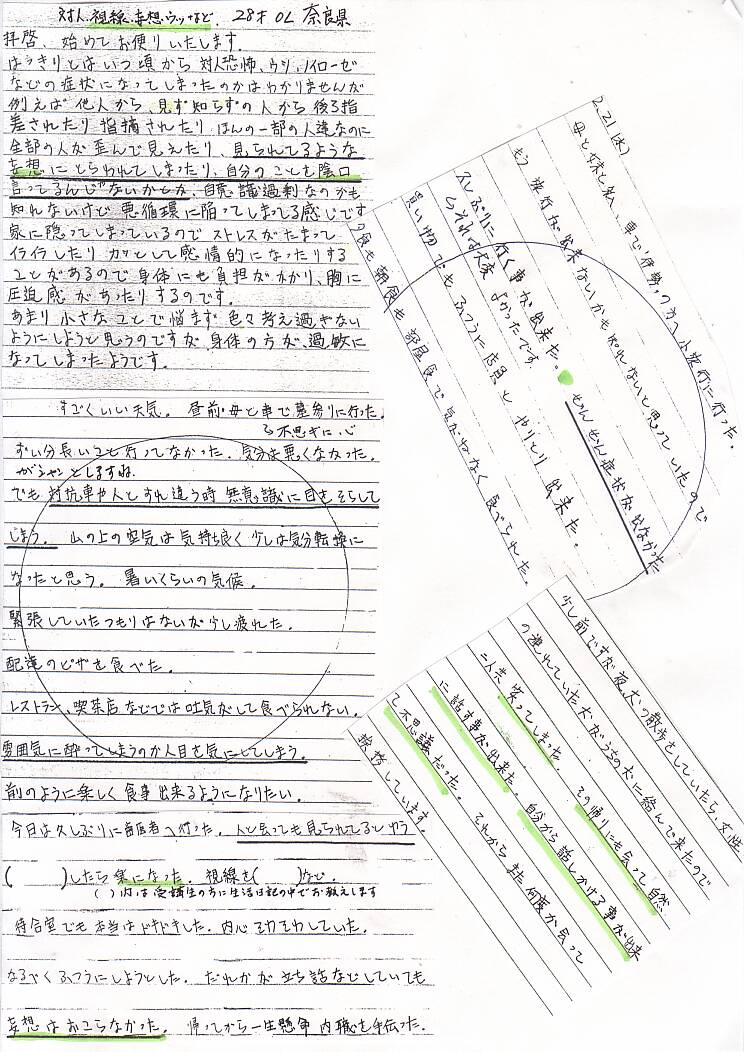 対人、視線、妄想、ウツなど、 28才 OL 奈良県
拝啓、始めてお便りいたします。
はっきりとはいつ頃から対人恐怖、ウツ、ノイローゼ
などの症状になってしまったのかはわかりませんが
例えば他人から、見ず知らずの人から後ろ指
差されたり指摘されたり、ほんの一部の人達なのに
全部の人が歪んで見えたり、見られてるような
妄想にとらわれてしまったり、自分のことを陰口
言ってるんじゃないかとか、自意識過剰なのかも
知れないけど悪循環に陥ってしまってる感じです
家に隠ってしまっているのでストレスがたまって
イライラしたりカッとして感情的になったりする
ことがあるので身体にも負担がかかり、胸に
圧迫感があったりするのです。
あまり小さなことで悩まず色々考え過ぎない
ようにしようと思うのですが身体の方が、過敏に
なってしまったようです。
すごくいい天気。昼前母と車で墓参りに行った。
る不思ぎに心
ずい分長いこと行ってなかった。気分は悪くなかった。
がシャンとしますね
でも対抗車や人とすれ違う時無意識に目をそらして
しまう。山の上の空気は気持ち良く少しは気分転換に
なったと思う。暑いくらいの気候。
緊張していたつもりはないが少し疲れた。
配達のピザを食べた。
レストラン、喫茶店などでは吐気がして食べられない。
雰囲気に酔ってしまうのか人目を気にしてしまう。
前のように楽しく食事出来るようになりたい。
今日は久しぶりに歯医者へ行った。人と会っても見られてるとゆう
( )したら楽になった。視線を( )など。
( )内は受講生の方に生活日記の中でお教えします
待合室でも本当はドキドキした。内心そわそわしていた。
なるべくふつうにしようとした。だれかが立ち話などしていても
妄想はおこらなかった。帰ってから一生懸命内職を手伝った。
2.21(水)
母と妹と私、車で伊勢の方へ小旅行に行った。
もう旅行が出来ないかも知れないと思っていたので
久しぶりに行く事が出来た。ぜんぜん症状が出なかった
よかったです。
買い物でもふつうに店員とやりとり出来た。
夕食も朝食も部屋食で気がねなく食べられた。
少し前ですが夜、犬の散歩をしていたら、女性
の連れていた犬がうちの犬に絡んで来たので
二人共笑ってしまった。その帰りにも会って自然
に話す事が出来た。自分から話しかける事が出来
て不思議だった。それからまた何度か会って
挨拶しています。